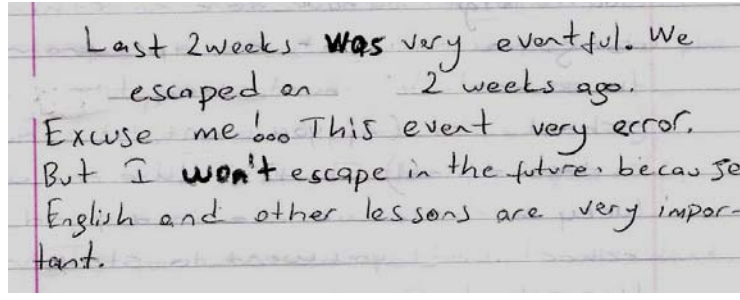 Last 2weeks was very eventful. We
escaped on 2 weeks ago.
Excuse me!... This event very error.
But I won't escape in the future, because
English and other lessons are very impor-
tant.